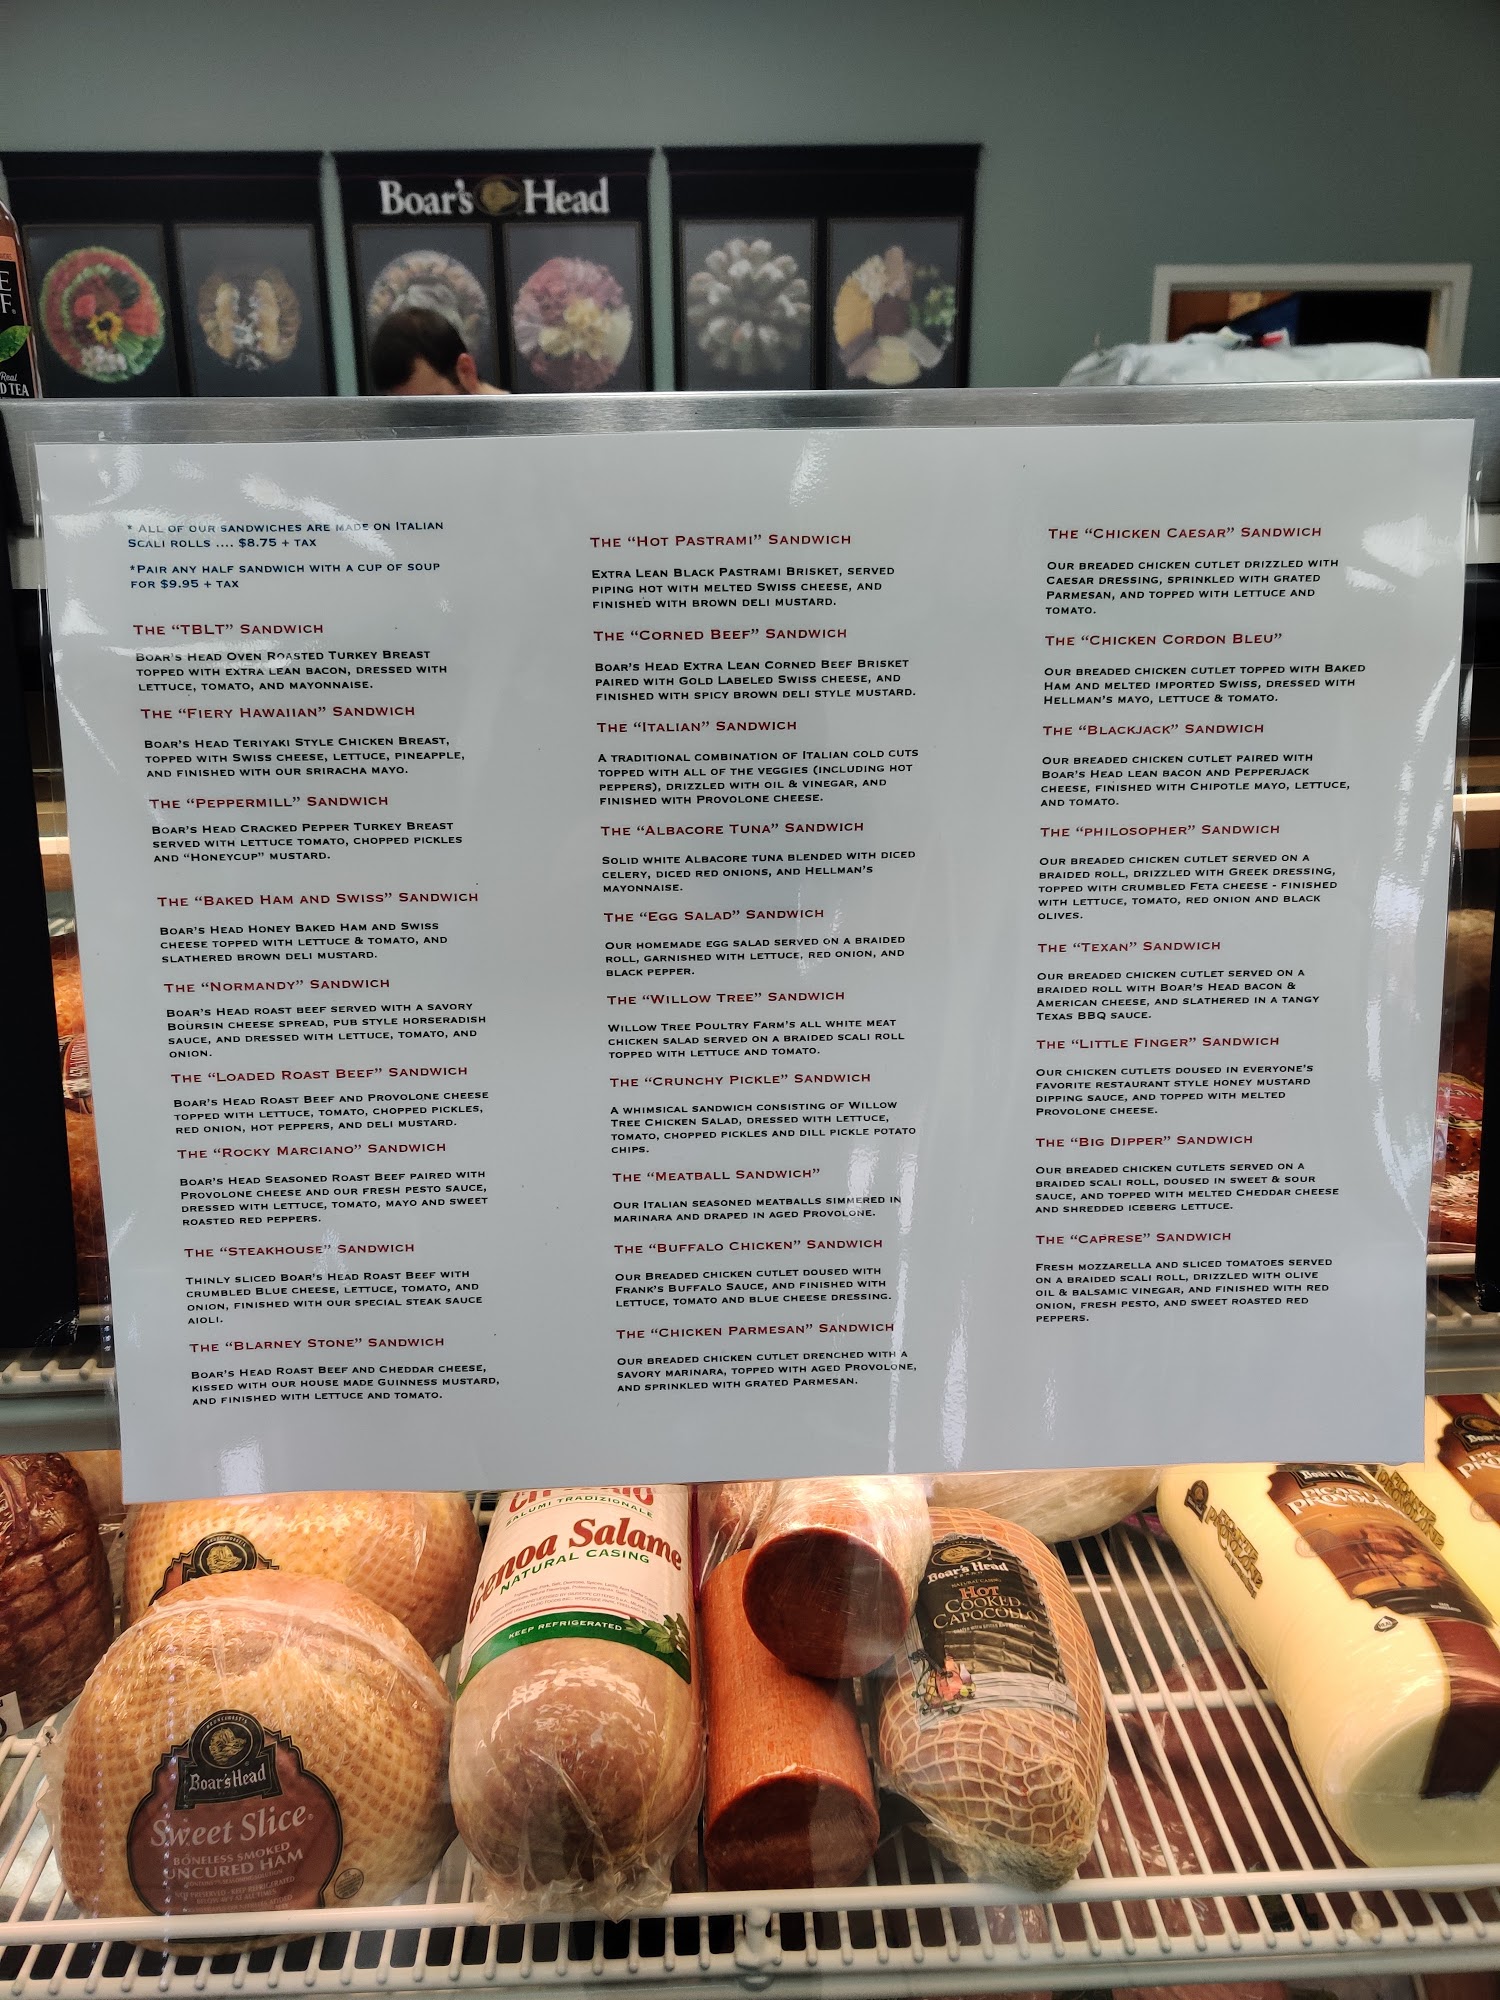 Boar's Head
E
F.
Real
D TEA
* All of our sandwiches are made on Italian
Scali rolls .... $8.75 + tax
*Pair any half sandwich with a cup of soup
for $9.95 + tax
The “TBLT” Sandwich
Boar's Head Oven Roasted Turkey Breast
topped with extra lean bacon, dressed with
lettuce, tomato, and mayonnaise.
The “Fiery Hawaiian” Sandwich
Boar's Head Teriyaki Style Chicken Breast,
topped with Swiss cheese, lettuce, pineapple,
and finished with our sriracha mayo.
The “Peppermill” Sandwich
Boar's Head Cracked Pepper Turkey Breast
served with lettuce tomato, chopped pickles
and “Honeycup” mustard.
The “Baked Ham and Swiss” Sandwich
Boar's Head Honey Baked Ham and Swiss
cheese topped with lettuce & tomato, and
slathered brown deli mustard.
The “Normandy” Sandwich
Boar's Head roast beef served with a savory
Boursin cheese spread, pub style horseradish
sauce, and dressed with lettuce, tomato, and
onion.
The “Loaded Roast Beef” Sandwich
Boar's Head Roast Beef and Provolone cheese
topped with lettuce, tomato, chopped pickles,
red onion, hot peppers, and deli mustard.
The “Rocky Marciano” Sandwich
Boar's Head Seasoned Roast Beef paired with
Provolone cheese and our fresh pesto sauce,
dressed with lettuce, tomato, mayo and sweet
roasted red peppers.
The “Steakhouse” Sandwich
Thinly sliced Boar's Head Roast Beef with
crumbled Blue cheese, lettuce, tomato, and
onion, finished with our special steak sauce
aioli.
The “Blarney Stone” Sandwich
Boar's Head Roast Beef and Cheddar cheese,
kissed with our house made Guinness mustard,
and finished with lettuce and tomato.
The “Hot Pastrami” Sandwich
Extra Lean Black Pastrami Brisket, served
piping hot with melted Swiss cheese, and
finished with brown deli mustard.
The “Corned Beef” Sandwich
Boar's Head Extra Lean Corned Beef Brisket
paired with Gold Labeled Swiss cheese, and
finished with spicy brown deli style mustard.
The “Italian” Sandwich
A traditional combination of Italian cold cuts
topped with all of the veggies (including hot
peppers), drizzled with oil & vinegar, and
finished with Provolone cheese.
The “Albacore Tuna” Sandwich
Solid white Albacore tuna blended with diced
celery, diced red onions, and Hellman's
mayonnaise.
The “Egg Salad” Sandwich
Our homemade egg salad served on a braided
roll, garnished with lettuce, red onion, and
black pepper.
The “Willow Tree” Sandwich
Willow Tree Poultry Farm's all white meat
chicken salad served on a braided Scali roll
topped with lettuce and tomato.
The “Crunchy Pickle” Sandwich
A whimsical sandwich consisting of Willow
Tree Chicken Salad, dressed with lettuce,
tomato, chopped pickles and dill pickle potato
chips.
The “Meatball Sandwich”
Our Italian seasoned meatballs simmered in
marinara and draped in aged Provolone.
The “Buffalo Chicken” Sandwich
Our Breaded chicken cutlet doused with
Frank's Buffalo Sauce, and finished with
lettuce, tomato and blue cheese dressing.
The “Chicken Parmesan” Sandwich
Our breaded chicken cutlet drenched with a
savory marinara, topped with aged Provolone,
and sprinkled with grated Parmesan.
The “Chicken Caesar” Sandwich
Our breaded chicken cutlet drizzled with
Caesar dressing, sprinkled with grated
Parmesan, and topped with lettuce and
tomato.
The “Chicken Cordon Bleu”
Our breaded chicken cutlet topped with Baked
Ham and melted imported Swiss, dressed with
Hellman's mayo, lettuce & tomato.
The “Blackjack” Sandwich
Our breaded chicken cutlet paired with
Boar's Head lean bacon and Pepperjack
cheese, finished with Chipotle mayo, lettuce,
and tomato.
The “philosopher” Sandwich
Our breaded chicken cutlet served on a
braided roll, drizzled with Greek dressing,
topped with crumbled Feta cheese - finished
with lettuce, tomato, red onion and black
olives.
The “Texan” Sandwich
Our breaded chicken cutlet served on a
braided roll with Boar's Head bacon &
American cheese, and slathered in a tangy
Texas BBQ sauce.
The “Little Finger” Sandwich
Our chicken cutlets doused in everyone's
favorite restaurant style honey mustard
dipping sauce, and topped with melted
Provolone cheese.
The “Big Dipper” Sandwich
Our breaded chicken cutlets served on a
braided Scali roll, doused in sweet & sour
sauce, and topped with melted Cheddar cheese
and shredded iceberg lettuce.
The “Caprese” Sandwich
Fresh mozzarella and sliced tomatoes served
on a braided Scali roll, drizzled with olive
oil & balsamic vinegar, and finished with red
onion, fresh pesto, and sweet roasted red
peppers.
SALUMI TRADIZIONALE
Genoa Salame
NATURAL CASING
KEEP REFRIGERATED
Boar's Head
Sweet Slice
BONELESS SMOKED
UNCURED HAM
Boar's Head
NATURAL CASING
HOT
COOKED
CAPOCOLLO
Boar's Head
PICANTE
PROVOLONE